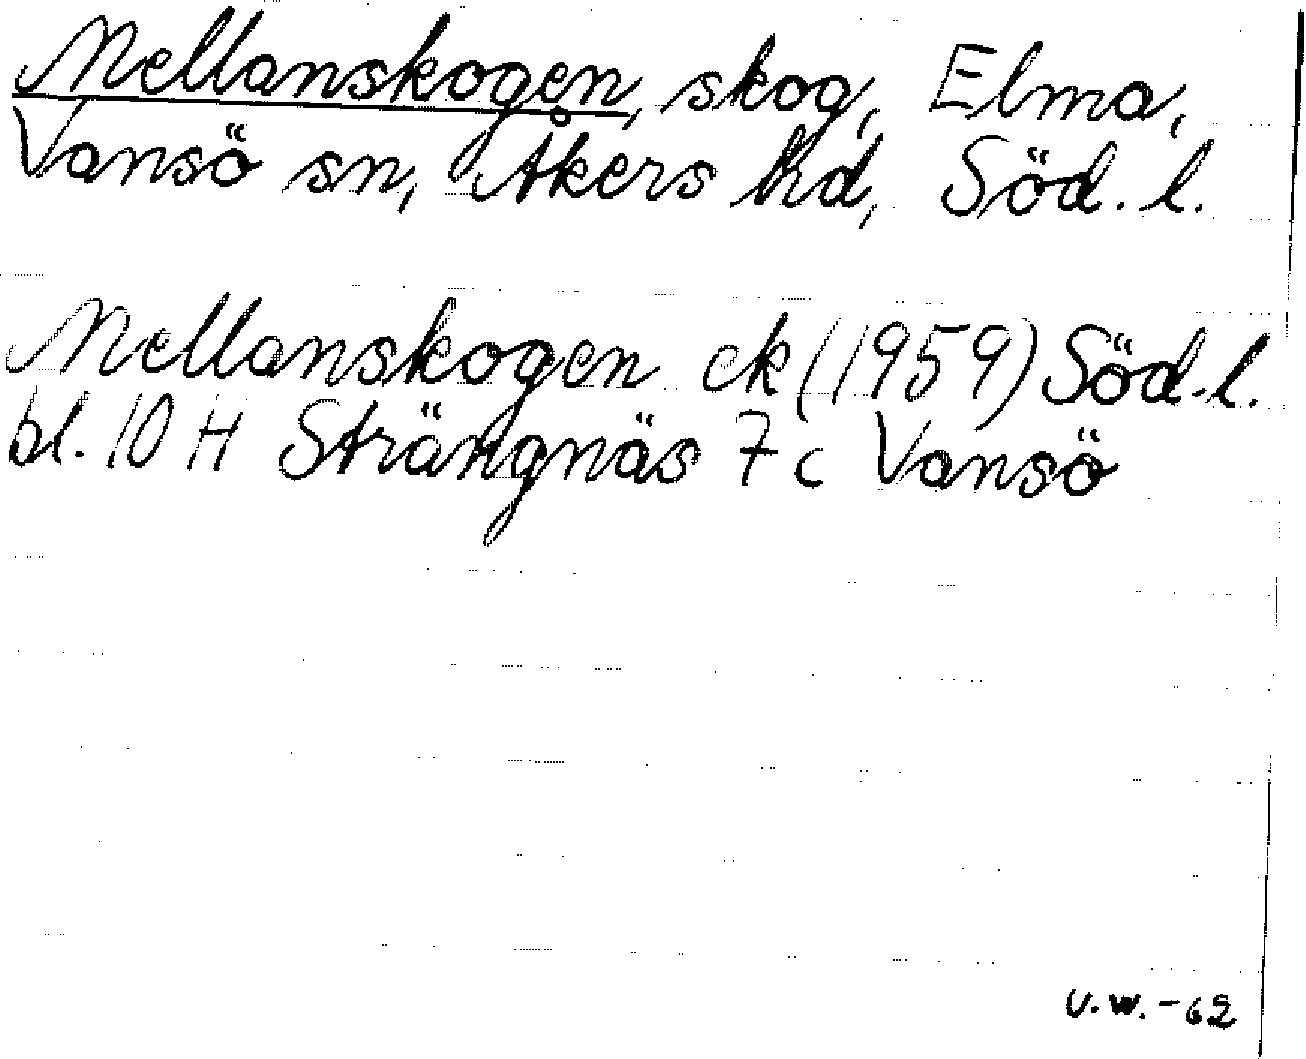 Mellanskogen, skog, Elma,
Vansö sn, Åkers hd, Söd. l.
Mellanskogen ek (1959) Söd. l.
bl. 10 H Strängnäs 7 c Vansö
U.W. -62